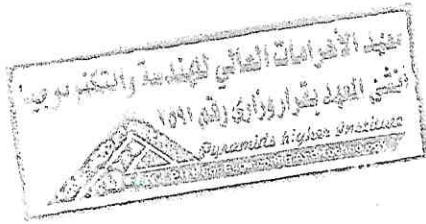 معهد الأهرامات العالي للهندسة والتكنولوجيا
أنشئ المعهد بقرار وزاري رقم ١٥٩١
Pyramids higher institute